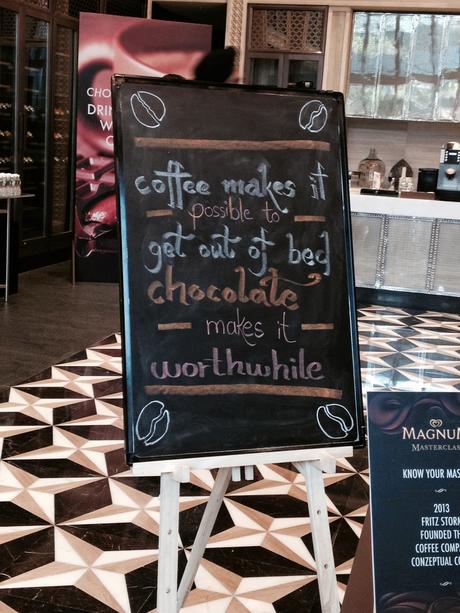 DRIN
coffee makes it
possible to
get out of bed
chocolate
makes it
worthwhile
MAGNUM
MASTERCLAS
KNOW YOUR MAS
2013
FRITZ STORM
FOUNDED TH
COFFEE COMP
CONZEPTUAL C